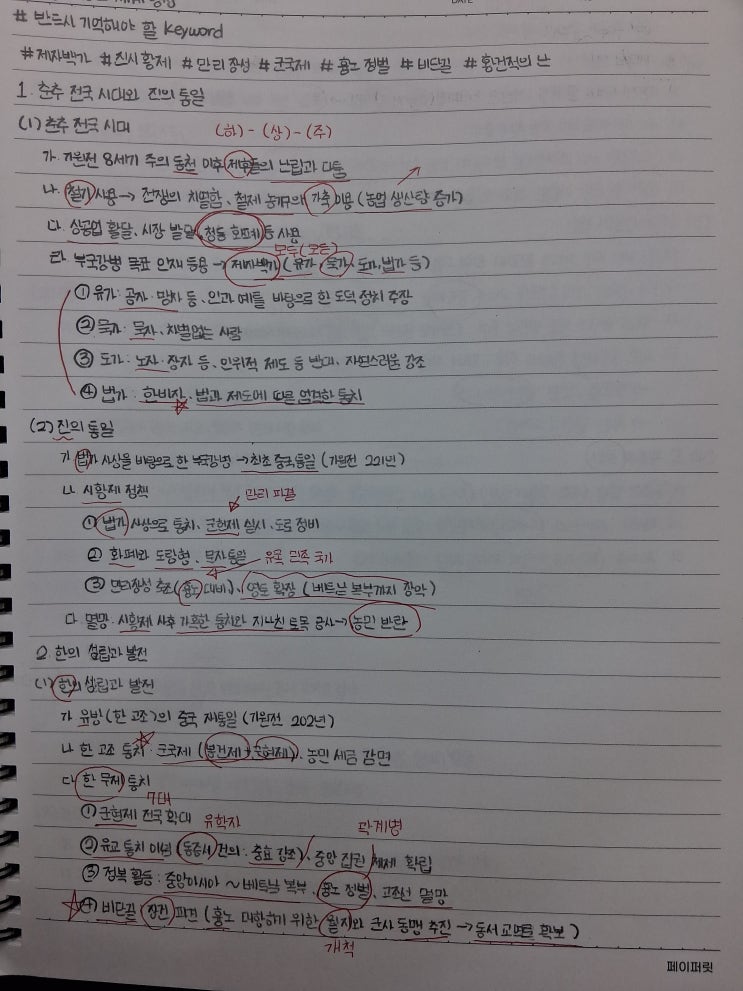 # 반드시 기억해야 할 Keyword
# 제자백가 # 진시황제 # 만리장성 # 군국제 # 흉노 정벌 # 비단길 # 황건적의 난
1. 춘추 전국 시대와 진의 통일
(1) 춘추 전국 시대 (하) - (상) - (주)
가. 기원전 8세기 주의 동천 이후 제후들의 난립과 다툼
나. 철기 사용 → 전쟁의 치열함, 철제 농기구와 가축 이용 (농업 생산량 증가)
다. 상공업 활달, 시장 발달, 청동 화폐 등 사용
라. 부국강병 목표 인재 등용 → 제자백가 (유가, 묵가, 도가, 법가 등)
① 유가: 공자·맹자 등, 인과 예를 바탕으로 한 도덕 정치 주장
② 묵가: 묵자, 차별없는 사랑
③ 도가: 노자·장자 등, 인위적 제도 등 반대, 자연스러움 강조
④ 법가: 한비자, 법과 제도에 따른 엄격한 통치
(2) 진의 통일
가. 법가 사상을 바탕으로 한 부국강병 → 최초 중국 통일 (기원전 221년)
나. 시황제 정책
관리 파견
① 법가 사상으로 통치, 군현제 실시, 도로 정비
② 화폐와 도량형, 문자 통일
③ 만리장성 축조 (흉노 대비), 영토 확장 (베트남 북부까지 장악)
다. 멸망: 시황제 사후 가혹한 통치와 지나친 토목 공사 → 농민 반란
2. 한의 성립과 발전
(1) 한의 성립과 발전
가. 유방 (한 고조)의 중국 재통일 (기원전 202년)
나. 한 고조 통치: 군국제 (봉건제 + 군현제), 농민 세금 감면
다. 한 무제 통치
7대
① 군현제 전국 확대 유학자 곽거병
② 유교 통치 이념 (동중서 건의: 충효 강조), 중앙 집권 체제 확립
③ 정복 활동: 중앙아시아 ~ 베트남 북부, 흉노 정벌, 고조선 멸망
④ 비단길: 장건 파견 (흉노 대항하기 위한 월지와 군사 동맹 추진 → 동서 교역로 확보)
개척
페이퍼릿